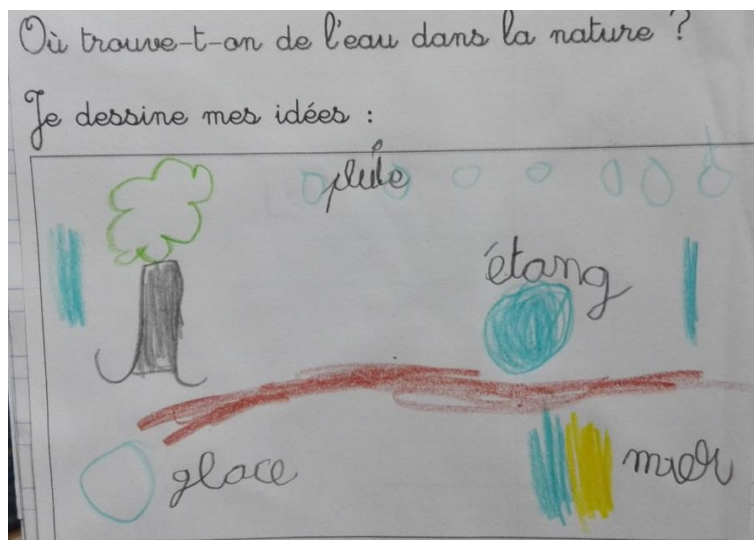 Où trouve-t-on de l'eau dans la nature ?
Je dessine mes idées :
pluie
étang
glace
mer